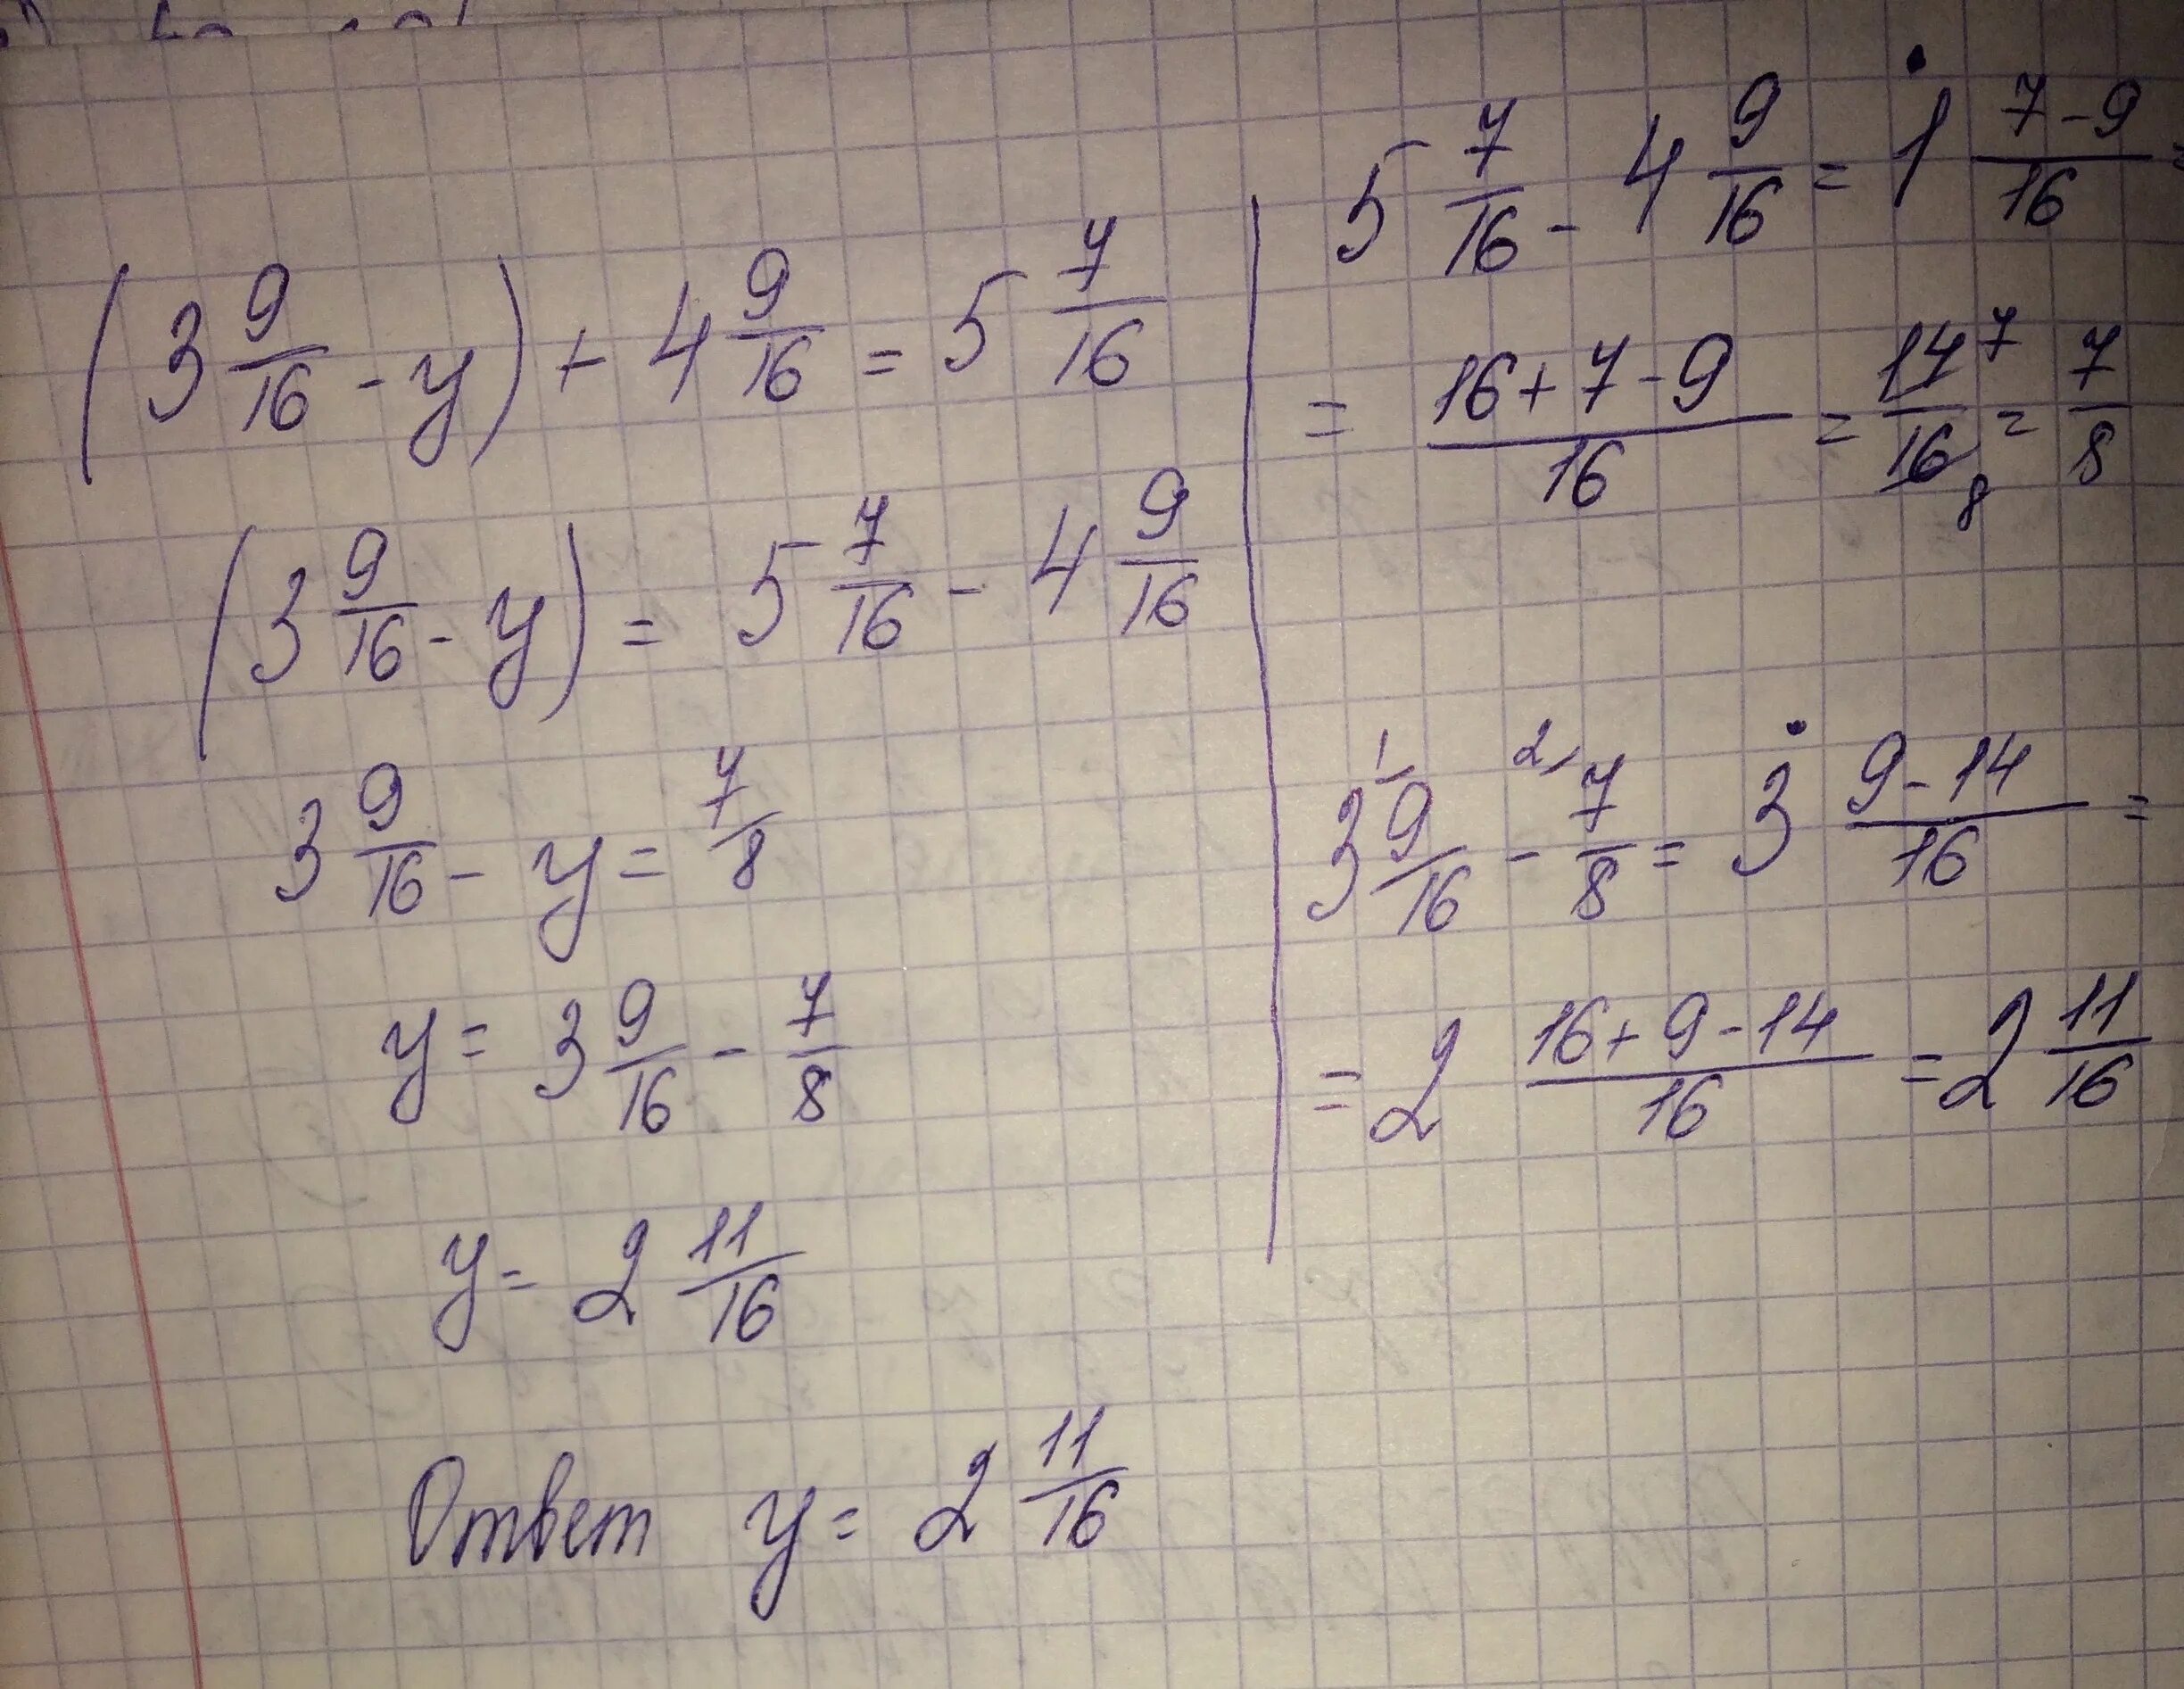 (3 9/16 - y) + 4 9/16 = 5 7/16
(3 9/16 - y) = 5 7/16 - 4 9/16
3 9/16 - y = 7/8
y = 3 9/16 - 7/8
y = 2 11/16
Ответ y = 2 11/16
5 7/16 - 4 9/16 = 1 (7-9)/16 =
= (16+7-9)/16 = 14 7/16 8 = 7/8
3 9 1/16 - 2 7/8 = 3 (9-14)/16 =
= 2 (16+9-14)/16 = 2 11/16